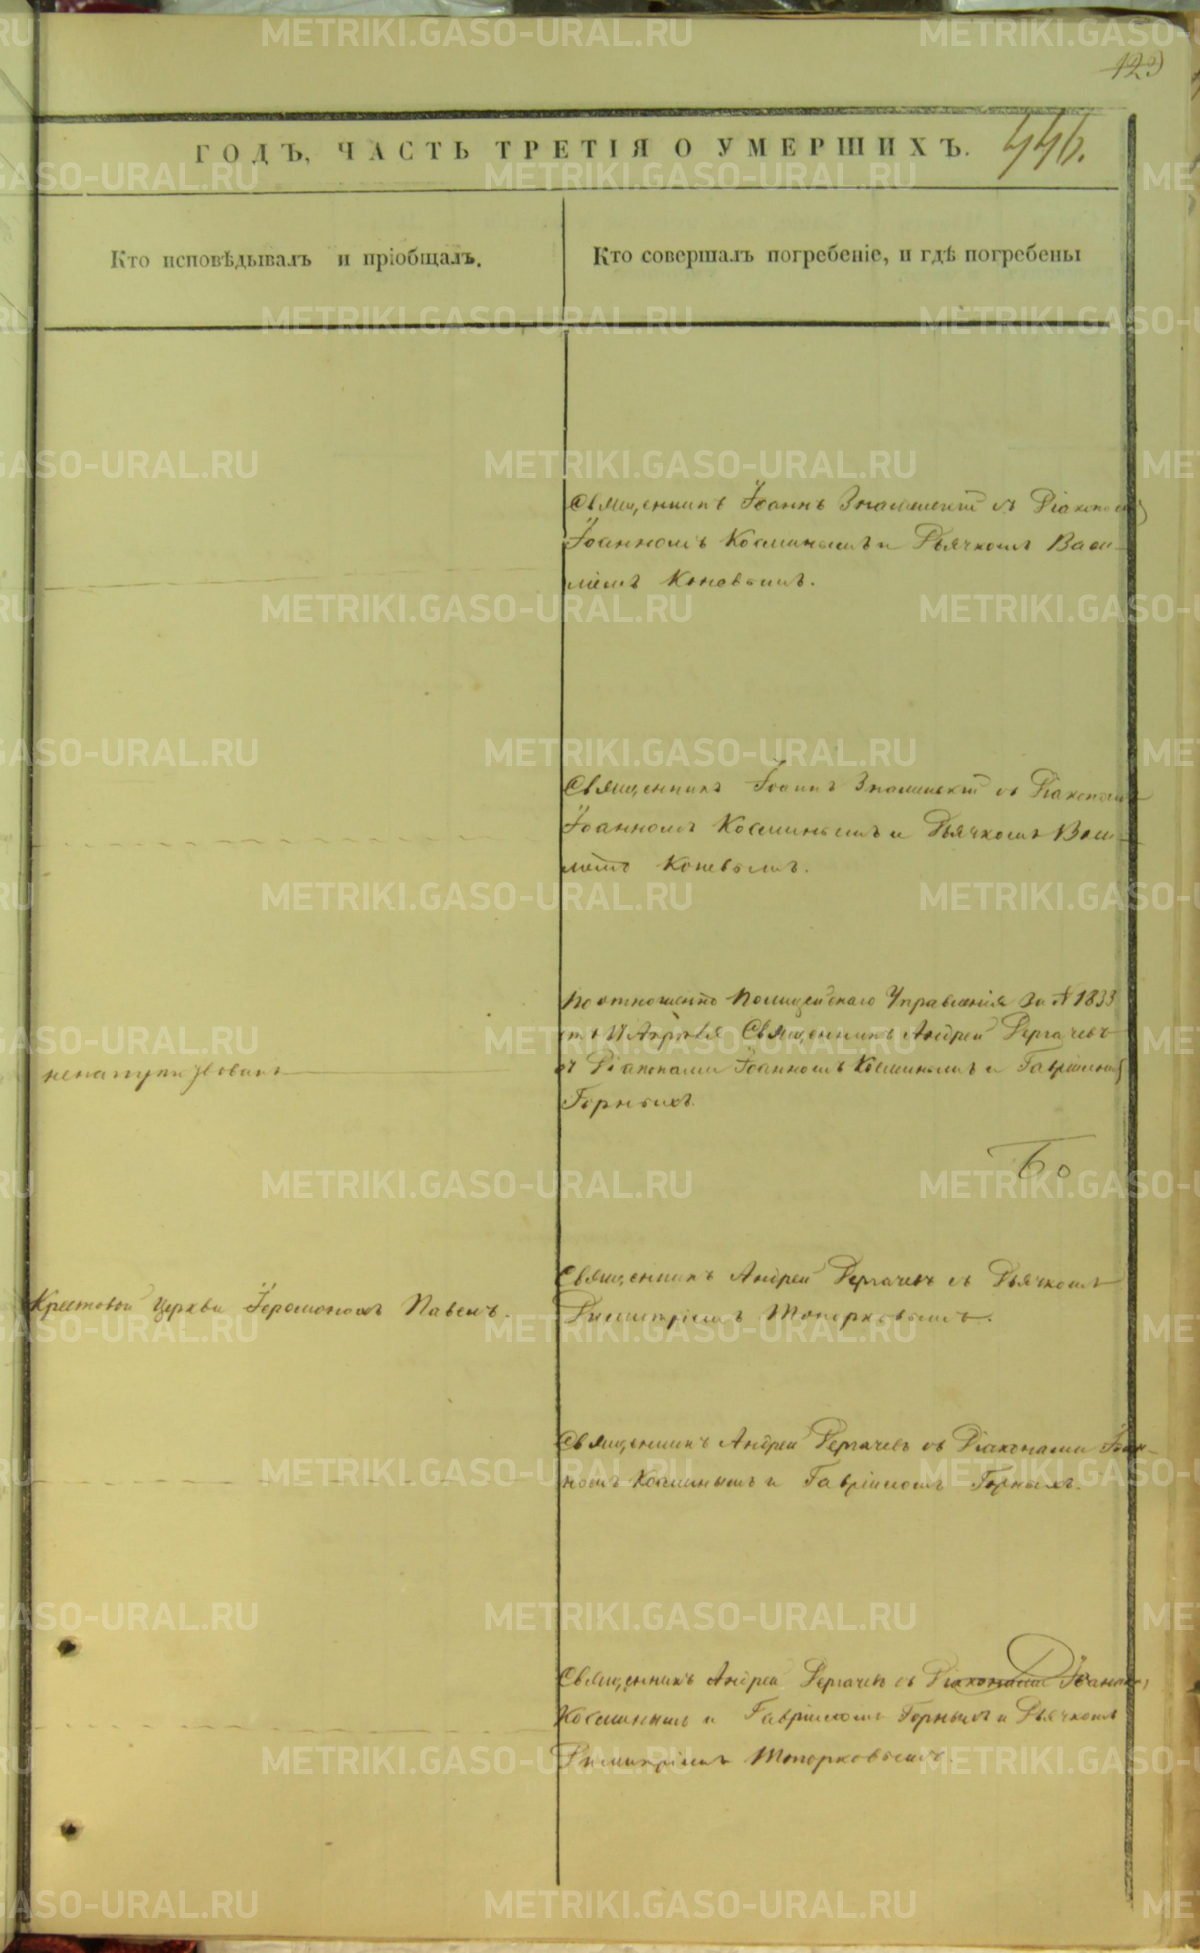 123
ГОДЪ, ЧАСТЬ ТРЕТІЯ О УМЕРШИХЪ. 446.
Кто исповѣдывалъ и пріобщалъ.
Кто совершалъ погребеніе, и гдѣ погребены
Священникъ Іоаннъ Знаменскій съ Діакономъ
Іоанномъ Косминымъ и Дьячкомъ Васи-
ліемъ Коневымъ.
Священникъ Іоаннъ Знаменскій съ Діакономъ
Іоанномъ Косминымъ и Дьячкомъ Васи-
ліемъ Коневымъ.
ненапутствованъ
По отношенію Полицейскаго Управленія за № 1833
отъ 17 Апрѣля Священникъ Андрей Дергачевъ
съ Діаконами Іоанномъ Косминымъ и Гавріиломъ
Горныхъ.
Крестовой церкви Іеромонахъ Павелъ.
Священникъ Андрей Дергачевъ съ Дьячкомъ
Димитріемъ Топорковымъ.
Священникъ Андрей Дергачевъ съ Діаконами Іоан-
номъ Косминымъ и Гавріиломъ Горныхъ.
Священникъ Андрей Дергачевъ съ Діаконами Іоанномъ
Косминымъ и Гавріиломъ Горныхъ и Дьячкомъ
Димитріемъ Топорковымъ.
METRIKI.GASO-URAL.RU